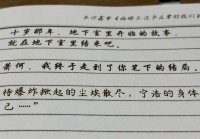 十岁那年，地下室里开始的故事，
就在地下室里结束吧。
萧何，我终于走到了你笔下的结局。
待爆炸掀起的尘埃散尽，宁浩的身体
已……"